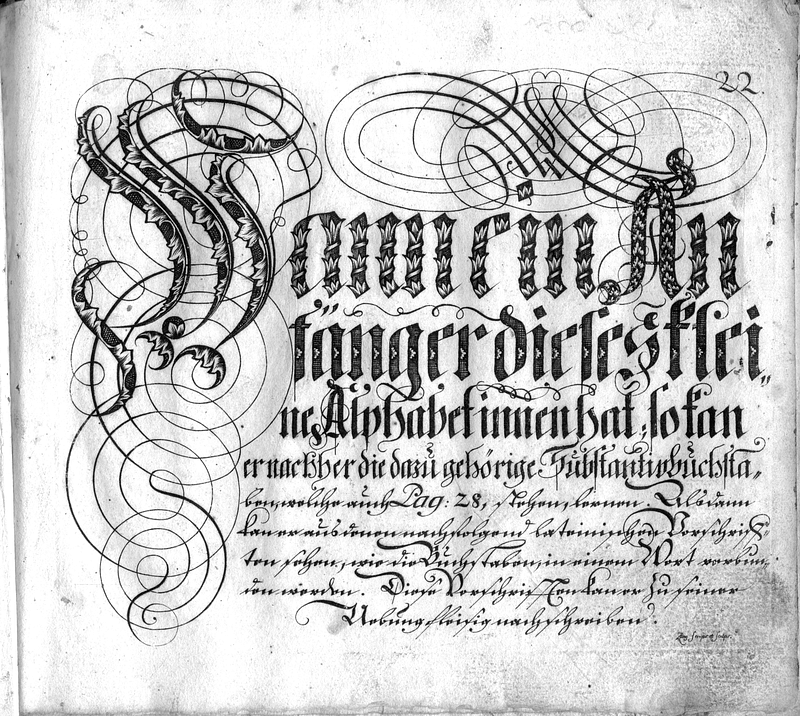 22.
Wann ein An
fänger dieses klei„
ne Alphabet innen hat, so kan
er nachher die dazu gehörige Substantivbuchsta„
ben, welche auch Pag: 28, stehen, lernen. Alsdann
kan er aus denen nachfolgend lateinischen Vorschrif„
ten sehen, wie die Buchstaben, in einem Wort verbun„
den werden. Diese Vorschrifften kan er zu seiner
Uebung fleisig nachschreiben.